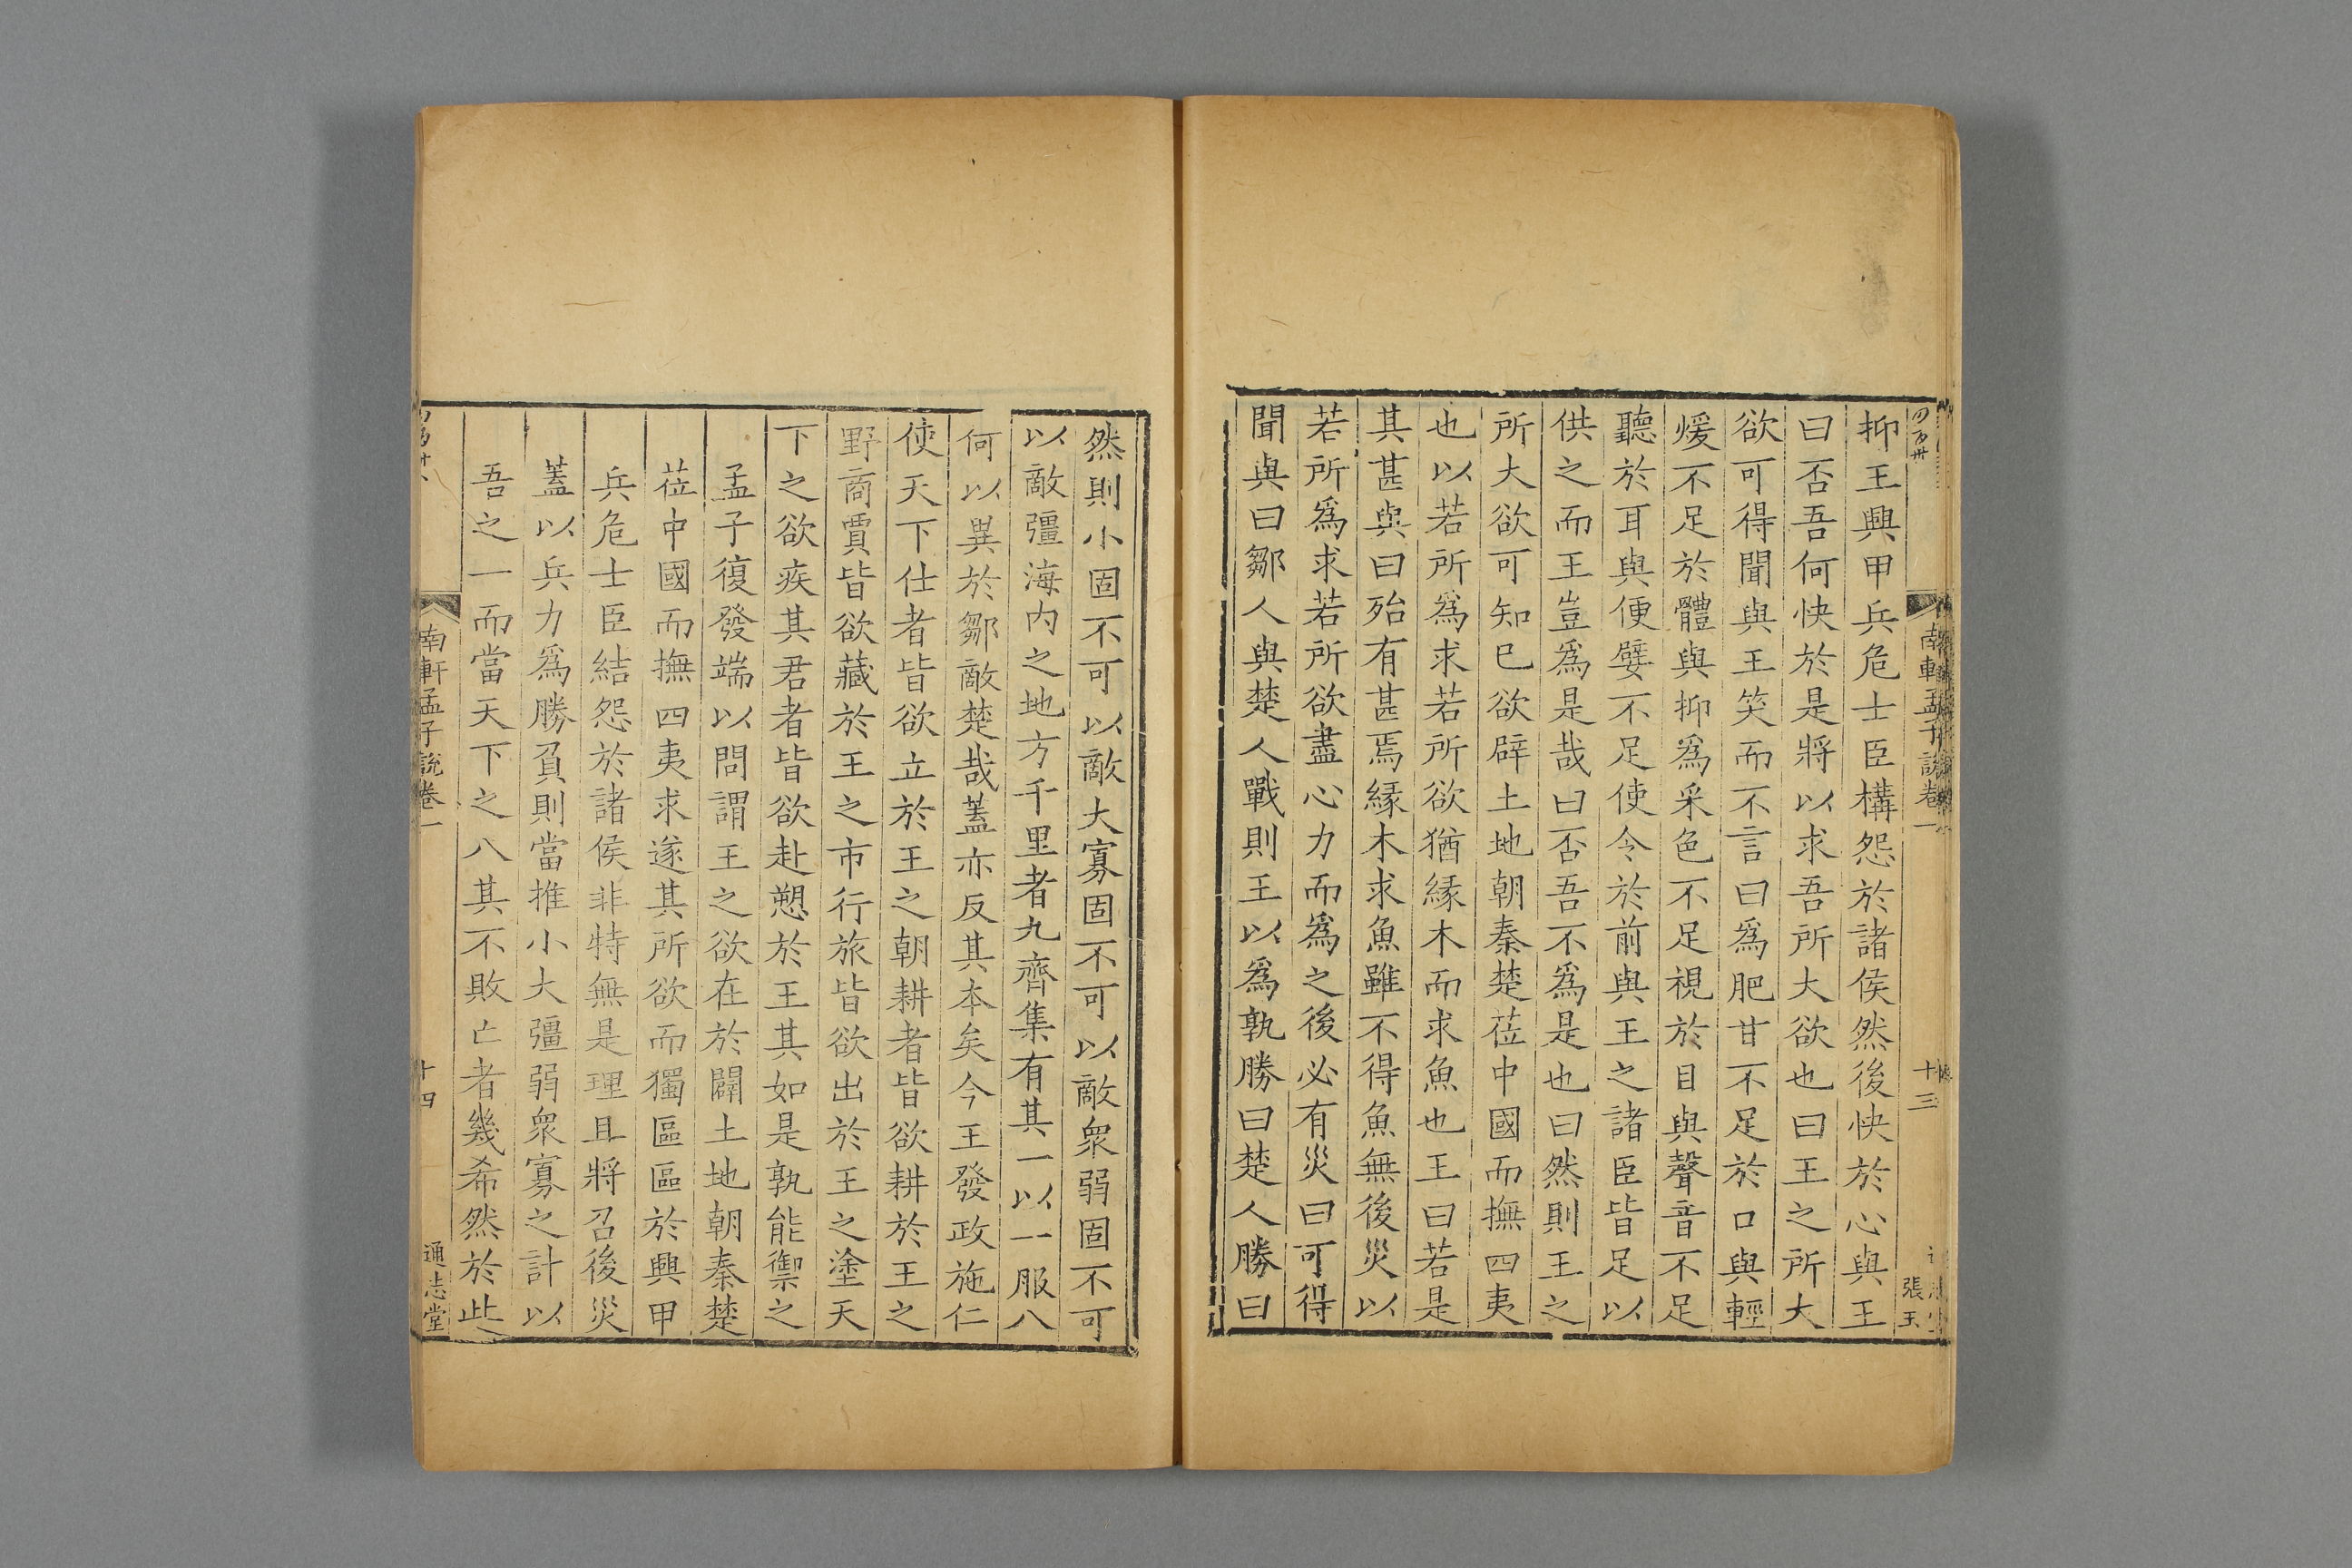 南軒孟子說卷一
十三
張玉
抑王興甲兵危士臣構怨於諸侯然後快於心與王
曰否吾何快於是將以求吾所大欲也曰王之所大
欲可得聞與王笑而不言曰爲肥甘不足於口與輕
煖不足於體與抑爲采色不足視於目與聲音不足
聽於耳與便嬖不足使令於前與王之諸臣皆足以
供之而王豈爲是哉曰否吾不爲是也曰然則王之
所大欲可知已欲辟土地朝秦楚莅中國而撫四夷
也以若所爲求若所欲猶緣木而求魚也王曰若是
其甚與曰殆有甚焉緣木求魚雖不得魚無後災以
若所爲求若所欲盡心力而爲之後必有災曰可得
聞與曰鄒人與楚人戰則王以爲孰勝曰楚人勝曰
然則小固不可以敵大寡固不可以敵衆弱固不可
以敵彊海内之地方千里者九齊集有其一以一服八
何以異於鄒敵楚哉蓋亦反其本矣今王發政施仁
使天下仕者皆欲立於王之朝耕者皆欲耕於王之
野商賈皆欲藏於王之市行旅皆欲出於王之塗天
下之欲疾其君者皆欲赴愬於王其如是孰能禦之
孟子復發端以問謂王之欲在於闢土地朝秦楚
莅中國而撫四夷求遂其所欲而獨區區於興甲
兵危士臣結怨於諸侯非特無是理且將召後災
蓋以兵力爲勝負則當推小大彊弱衆寡之計以
吾之一而當天下之八其不敗亡者幾希然於此
南軒孟子說卷一
十四
通志堂